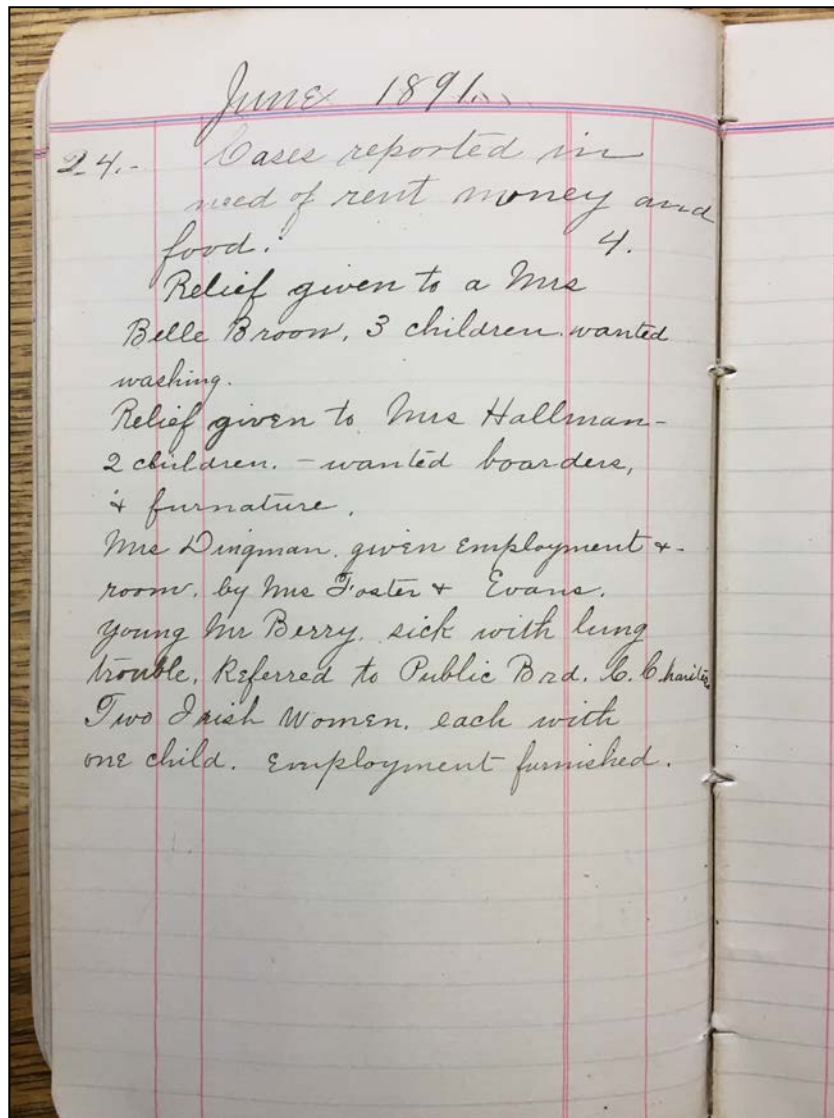 June 1891.
24.- Cases reported in
need of rent money and
food. 4.
Relief given to a Mrs
Belle Broom, 3 children. wanted
washing.
Relief given to Mrs Hallman -
2 children. - wanted boarders,
& furnature.
Mrs Dingman. given Employment &
room. by Mrs Foster & Evans.
Young Mr Berry. sick with lung
trouble. Referred to Public Brd. C. Charities
Two Irish Women. each with
one child. Employment furnished.